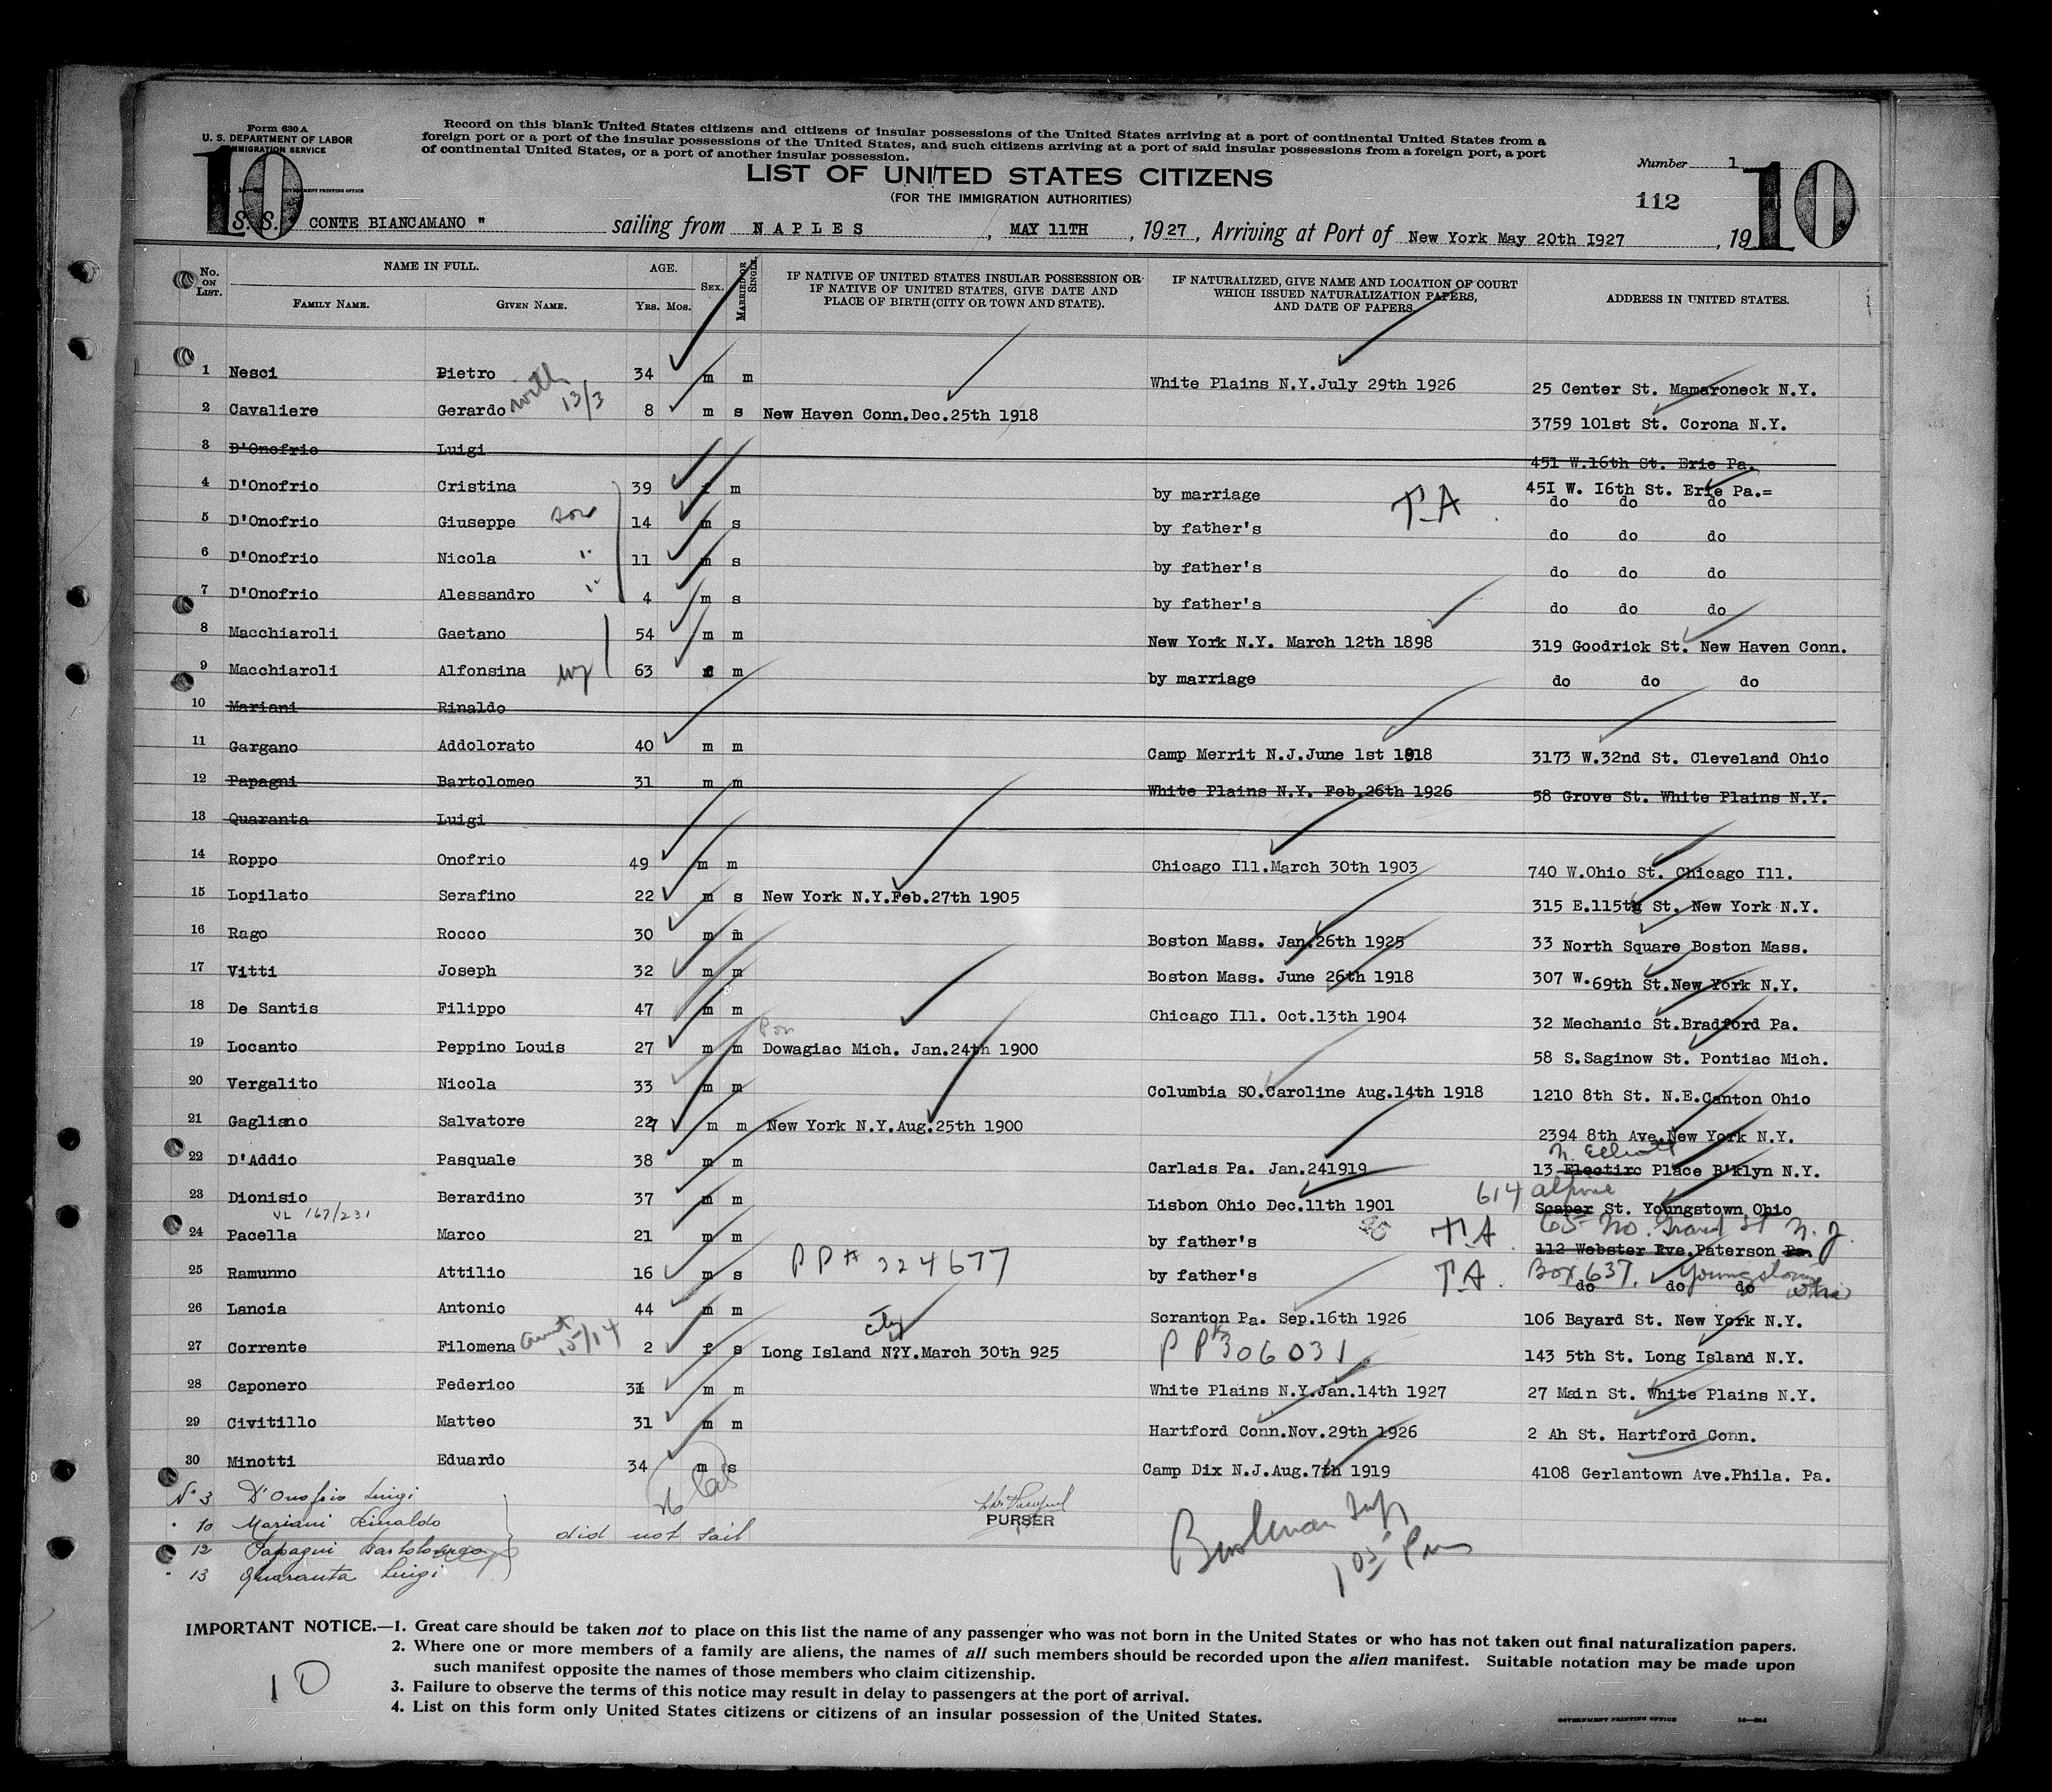 Form 630 A
U. S. DEPARTMENT OF LABOR
IMMIGRATION SERVICE
Record on this blank United States citizens and citizens of insular possessions of the United States arriving at a port of continental United States from a
foreign port or a port of the insular possessions of the United States, and such citizens arriving at a port of said insular possessions from a foreign port, a port
of continental United States, or a port of another insular possession.
10
LIST OF UNITED STATES CITIZENS
(FOR THE IMMIGRATION AUTHORITIES)
Number 1
112
10
S. S. CONTE BIANCAMANO " sailing from NAPLES, MAY 11TH, 1927, Arriving at Port of New York May 20th I927, 19
No. ON LIST. NAME IN FULL. FAMILY NAME. GIVEN NAME. AGE. YRS. MOS. SEX. MARRIED OR SINGLE. IF NATIVE OF UNITED STATES INSULAR POSSESSION OR IF NATIVE OF UNITED STATES, GIVE DATE AND PLACE OF BIRTH (CITY OR TOWN AND STATE). IF NATURALIZED, GIVE NAME AND LOCATION OF COURT WHICH ISSUED NATURALIZATION PAPERS, AND DATE OF PAPERS. ADDRESS IN UNITED STATES.
1 Nesci Pietro 34 m m White Plains N.Y.July 29th 1926 25 Center St. Mamaroneck N.Y.
2 Cavaliere Gerardo with 13/3 8 m s New Haven Conn.Dec.25th 1918 3759 101st St. Corona N.Y.
3 D'Onofrio Luigi 451 W.16th St. Erie Pa.
4 D'Onofrio Cristina 39 f m by marriage T.A 45I W. I6th St. Erie Pa.=
do do do
5 D'Onofrio Giuseppe son 14 m s by father's do do do
6 D'Onofrio Nicola " 11 m s by father's do do do
7 D'Onofrio Alessandro " 4 m s by father's do do do
8 Macchiaroli Gaetano 54 m m New York N.Y. March 12th 1898 319 Goodrick St. New Haven Conn.
9 Macchiaroli Alfonsina wf 63 f m by marriage do do do
10 Mariani Rinaldo
11 Gargano Addolorato 40 m m Camp Merrit N.J.June 1st 1918 3173 W.32nd St. Cleveland Ohio
12 Papagni Bartolomeo 31 m m White Plains N.Y. Feb.26th 1926 58 Grove St. White Plains N.Y.
13 Quaranta Luigi
14 Roppo Onofrio 49 m m Chicago Ill.March 30th 1903 740 W.Ohio St. Chicago Ill.
15 Lopilato Serafino 22 m s New York N.Y.Feb.27th 1905 315 E.115th St. New York N.Y.
16 Rago Rocco 30 m m Boston Mass. Jan.26th 1925 33 North Square Boston Mass.
17 Vitti Joseph 32 m m Boston Mass. June 26th 1918 307 W.69th St.New York N.Y.
18 De Santis Filippo 47 m m Chicago Ill. Oct.13th 1904 32 Mechanic St.Bradford Pa.
19 Locanto Peppino Louis 27 m m Dowagiac Mich. Jan.24th 1900 58 S.Saginow St. Pontiac Mich.
20 Vergalito Nicola 33 m m Columbia SO.Caroline Aug.14th 1918 1210 8th St. N.E.Canton Ohio
21 Gagliano Salvatore 27 m m New York N.Y.Aug.25th 1900 2394 8th Ave.New York N.Y.
22 D'Addio Pasquale 38 m m Carlais Pa. Jan.241919 13 Electirc N. Elliott Place B'klyn N.Y.
23 Dionisio Berardino 37 m m Lisbon Ohio Dec.11th 1901 614 alpine Scaper St. Youngstown Ohio
VL 167/231
24 Pacella Marco 21 m m by father's T.A 65 No. Grand St N.J.
112 Webster Ave.Paterson Pa.
25 Ramunno Attilio 16 m s PP# 324677 by father's T.A. Box 637. Youngstown Ohio
do do do
26 Lancia Antonio 44 m m Scranton Pa. Sep.16th 1926 106 Bayard St. New York N.Y.
27 Corrente Filomena aunt 15/14 2 f s city Long Island N?Y.March 30th 925 PP# 306031 143 5th St. Long Island N.Y.
28 Caponero Federico 31 m m White Plains N.Y.Jan.14th 1927 27 Main St. White Plains N.Y.
29 Civitillo Matteo 31 m m Hartford Conn.Nov.29th 1926 2 Ah St. Hartford Conn.
30 Minotti Eduardo 34 m s Camp Dix N.J.Aug.7th 1919 4108 Gerlantown Ave.Phila. Pa.
N° 3 D'Onofrio Luigi
" 10 Mariani Rinaldo
" 12 Papagni Bartolomeo
" 13 Quaranta Luigi
did not sail
26
PURSER
IMPORTANT NOTICE.—1. Great care should be taken not to place on this list the name of any passenger who was not born in the United States or who has not taken out final naturalization papers.
2. Where one or more members of a family are aliens, the names of all such members should be recorded upon the alien manifest. Suitable notation may be made upon
such manifest opposite the names of those members who claim citizenship.
3. Failure to observe the terms of this notice may result in delay to passengers at the port of arrival.
4. List on this form only United States citizens or citizens of an insular possession of the United States.
10
GOVERNMENT PRINTING OFFICE